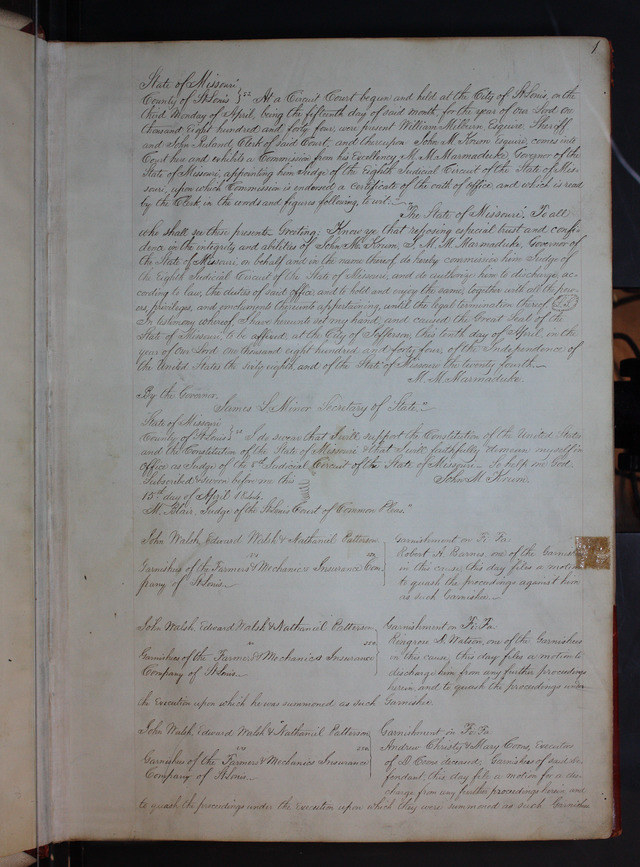 1
State of Missouri,
County of St Louis } ss At a Circuit Court begun and held at the City of St Louis, on the
third Monday of April, being the fifteenth day of said month, for the year of our Lord One
thousand Eight hundred and forty four, were present William Milburn Esquire, Sheriff,
and John Ruland, Clerk of said Court, and thereupon John M. Krum Esquire, comes into
Court here and exhibits a Commission from his Excellency M. M. Marmaduke, Governor of the
State of Missouri, appointing him Judge of the Eighth Judicial Circuit of the State of Mis-
souri, upon which Commission is endorsed a certificate of the oath of office, and which is read
by the Clerk, in the words and figures following, to wit:—
"The State of Missouri, To all
who shall see these presents Greeting: Know ye that reposing especial trust and confi-
dence in the integrity and abilities of John M. Krum, I, M. M. Marmaduke, Governor of
the State of Missouri, on behalf and in the name thereof, do hereby commission him Judge of
the Eighth Judicial Circuit of the State of Missouri, and do authorize him to discharge, ac-
cording to law, the duties of said office, and to hold and enjoy the same, together with all the pow-
ers, privileges, and emoluments thereunto appertaining, until the legal termination thereof.
In testimony whereof, I have hereunto set my hand, and caused the Great Seal of the
State of Missouri, to be affixed, at the City of Jefferson, this tenth day of April, in the
year of our Lord one thousand eight hundred and forty four, of the Independence of
the United States the sixty eighth, and of the State of Missouri the twenty fourth.—
M. M. Marmaduke.
By the Governor,
James L. Minor Secretary of State."
State of Missouri
County of St Louis } ss I do swear that I will support the Constitution of the United States
and the Constitution of the State of Missouri & that I will faithfully demean myself in
office as Judge of the 8th Judicial Circuit of the State of Missouri— So help me God.
Subscribed & sworn before me this John M. Krum.
15th day of April 1844.
M. Blair, Judge of the St Louis Court of Common Pleas."
John Walsh, Edward Walsh & Nathaniel Patterson
vs
Garnishees of the Farmers & Mechanics Insurance Com-
pany of St Louis.—
Garnishment on Fi. Fa.
Robert A. Barnes, one of the Garnishees
in this cause, this day files a motion
to quash the proceedings against him
as such Garnishee.—
John Walsh, Edward Walsh & Nathaniel Patterson
vs
Garnishees of the Farmers & Mechanics Insurance
Company of St Louis.—
Garnishment on Fi. Fa.
Ringrose D. Watson, one of the Garnishees
in this cause, this day files a motion to
discharge him from any further proceedings
herein, and to quash the proceedings under
the Execution upon which he was summoned as such Garnishee.
John Walsh, Edward Walsh & Nathaniel Patterson
vs
Garnishees of the Farmers & Mechanics Insurance
Company of St Louis.—
Garnishment on Fi. Fa.
Andrew Christy & Mary Coons, Executors
of D Coons deceased, Garnishees of said de-
fendant, this day file a motion for a dis-
charge from any further proceedings herein, and
to quash the proceedings under the Execution upon which they were summoned as such Garnishees